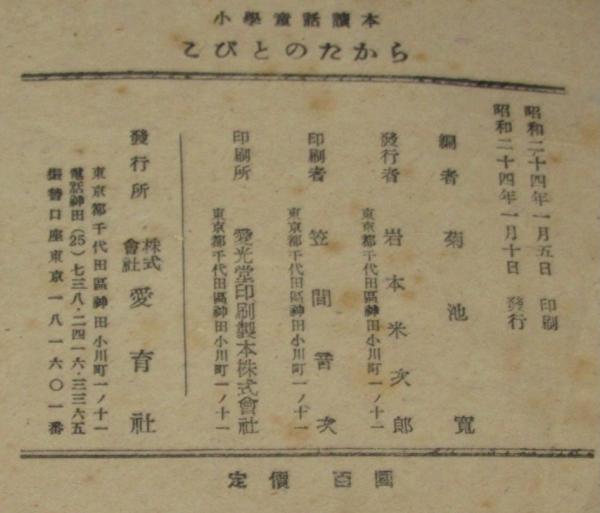 小學童話讀本
こびとのたから
昭和二十四年一月五日 印刷
昭和二十四年一月十日 發行
編者 菊池寬
發行者 岩本米次郎
東京都千代田區神田小川町一ノ十一
印刷者 笠間啻次
東京都千代田區神田小川町一ノ十一
印刷所 愛光堂印刷製本株式會社
東京都千代田區神田小川町一ノ十一
發行所 株式會社 愛育社
東京都千代田區神田小川町一ノ十一
電話神田(25)七三八・二四一六・三三六五
振替口座東京一八一六〇一番
定價 百圓